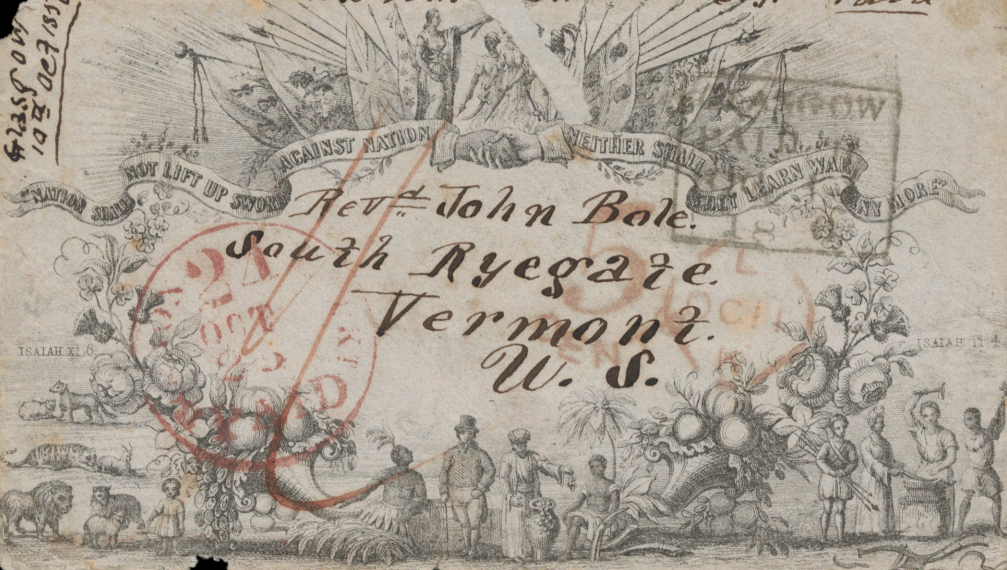 GLASGOW
10th Oct 185
Paid
"NATION SHALL NOT LIFT UP SWORD AGAINST NATION NEITHER SHALL THEY LEARN WAR ANY MORE"
GLASGOW
PAID
Revd John Bole.
South Ryegate.
Vermont.
U. S.
24
OCT
PAID
5
CENTS
ISAIAH XI.6.
ISAIAH 11.4